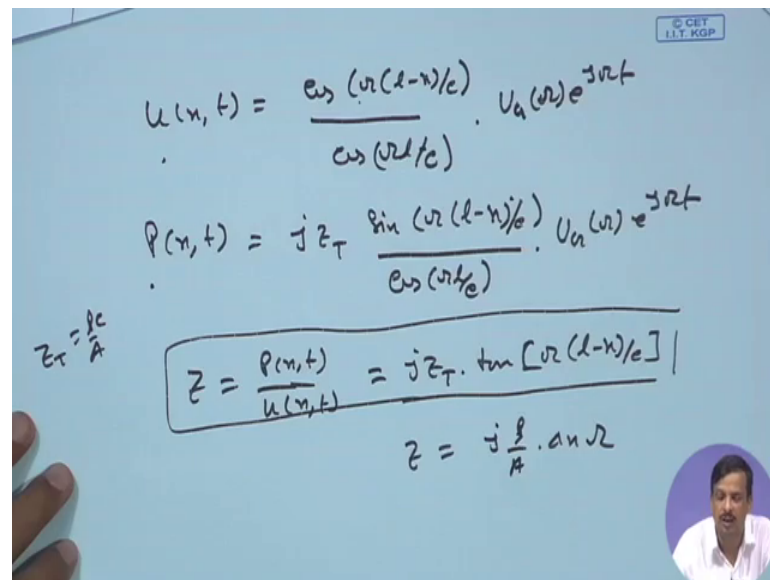 © CET
I.I.T. KGP
u(x, t) = cos (Ω(l-x)/c) / cos (Ωl/c) . U_G(Ω) e^jΩt
P(x, t) = j Z_T sin (Ω(l-x)/c) / cos (Ωl/c) . U_G(Ω) e^jΩt
Z_T = ρc/A
Z = P(x,t) / u(x,t) = j Z_T . tan [Ω(l-x)/c]
Z = j ρ/A . Δx Ω